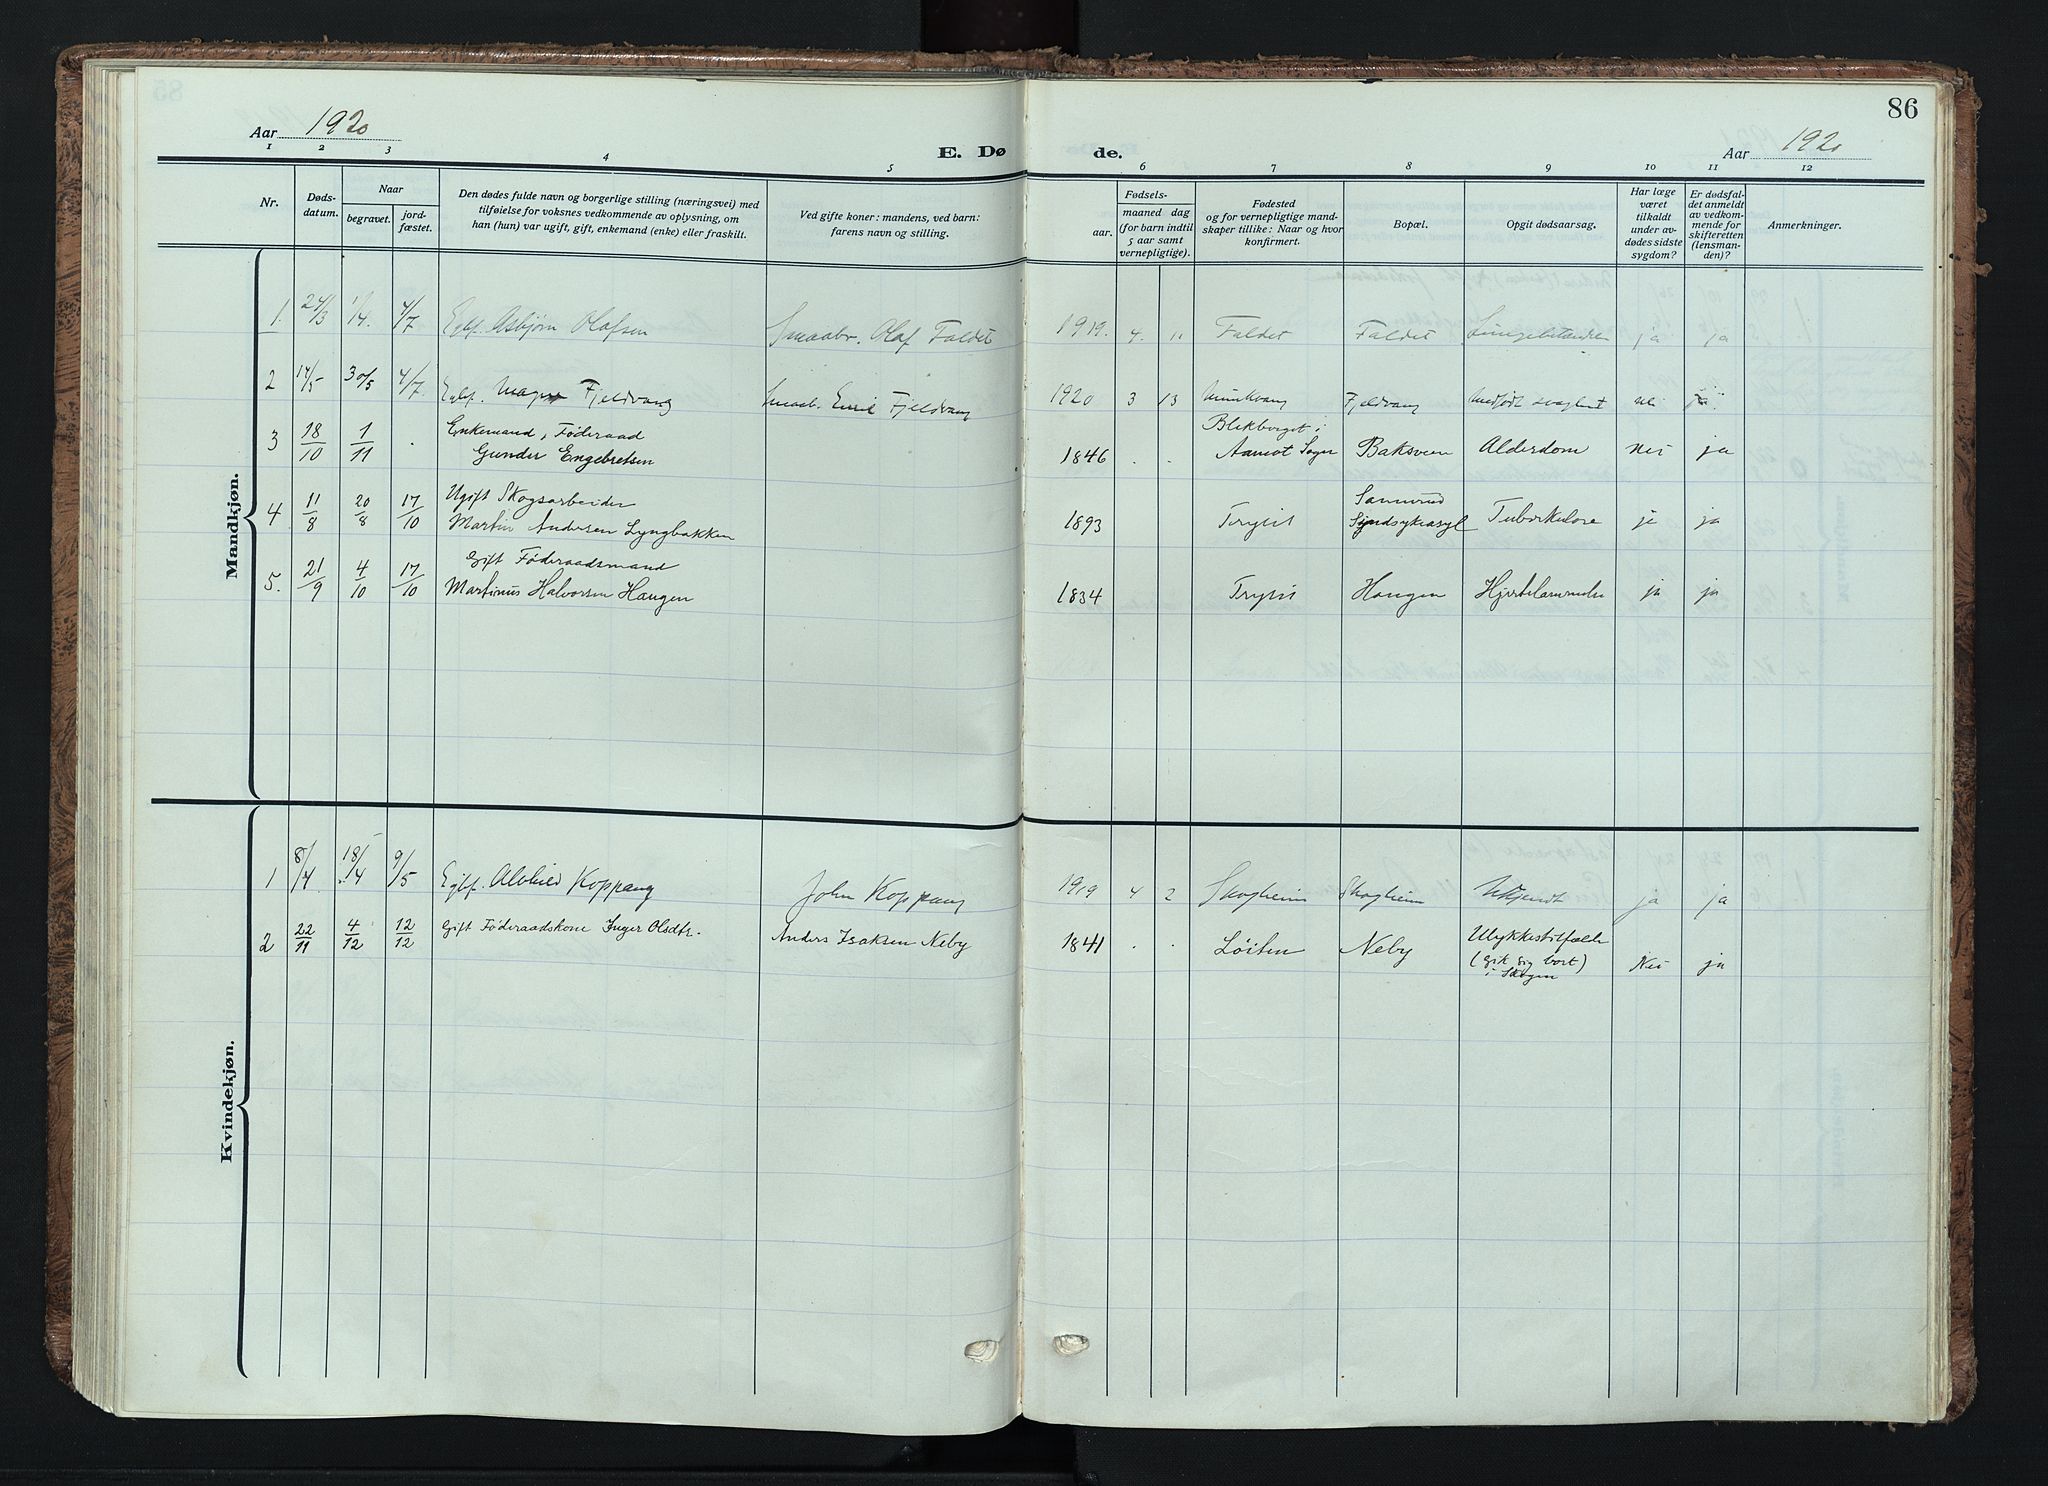 86
Aar 1920
E. Dø
de.
Aar 1920
1 2 3 4 5 6 7 8 9 10 11 12
Nr.
Døds-
datum.
Naar
begravet.
jord-
fæstet.
Den dødes fulde navn og borgerlige stilling (næringsvei) med
tilføielse for voksnes vedkommende av oplysning, om
han (hun) var ugift, gift, enkemand (enke) eller fraskilt.
Ved gifte koner: mandens, ved barn:
farens navn og stilling.
Fødsels-
aar.
maaned dag
(for barn indtil
5 aar samt
vernepligtige).
Fødested
og for vernepligtige mand-
skaper tillike: Naar og hvor
konfirmert.
Bopæl.
Opgit dødsaarsag.
Har læge
været
tilkaldt
under av-
dødes sidste
sygdom?
Er dødsfal-
det anmeldt
av vedkom-
mende for
skifteretten
(lensman-
den)?
Anmerkninger.
Mandkjøn.
1. 24/3 4/7 Egtf. Asbjørn Olafsen Smaabr. Olaf Faldet 1919. 4. 11 Faldet Faldet ja ja
2 14/5 30/5 4/7 Egtf. Fjeldvang Smaab. Emil Fjeldvang 1920 3 13 Fjeldvang medfødt svaghet
3 18/10 1/11 . Enkemand, Føderaad
Gunder Engebretsen 1846 . . Aamot Sogn Baksveen Alderdom Nei ja
4 11/8 20/8 17/10 Ugift Skogsarbeider
Martin Andersen Lyngbakken 1893 Trysil Sanderud
Sindsykeasyl Tuberkulose ja
5. 21/9 4/10 17/10 Gift Føderaadsmand
Martinus Halvorsen Haugen 1834 Trysil Haugen Hjertelammelse ja ja
Kvindekjøn.
1 8/4 18/4 9/5 Egtf. Alvhild Koppang John Koppang 1919 4 2 Skogheim Skogheim Ukjendt ja ja
2 22/11 4/12 12/12 Gift Føderaadskone Inger Olsdtr. Anders Isaksen Neby 1841 . . Løiten Neby Ulykkestilfælde
(gik sig bort)
i Skogen Nei ja